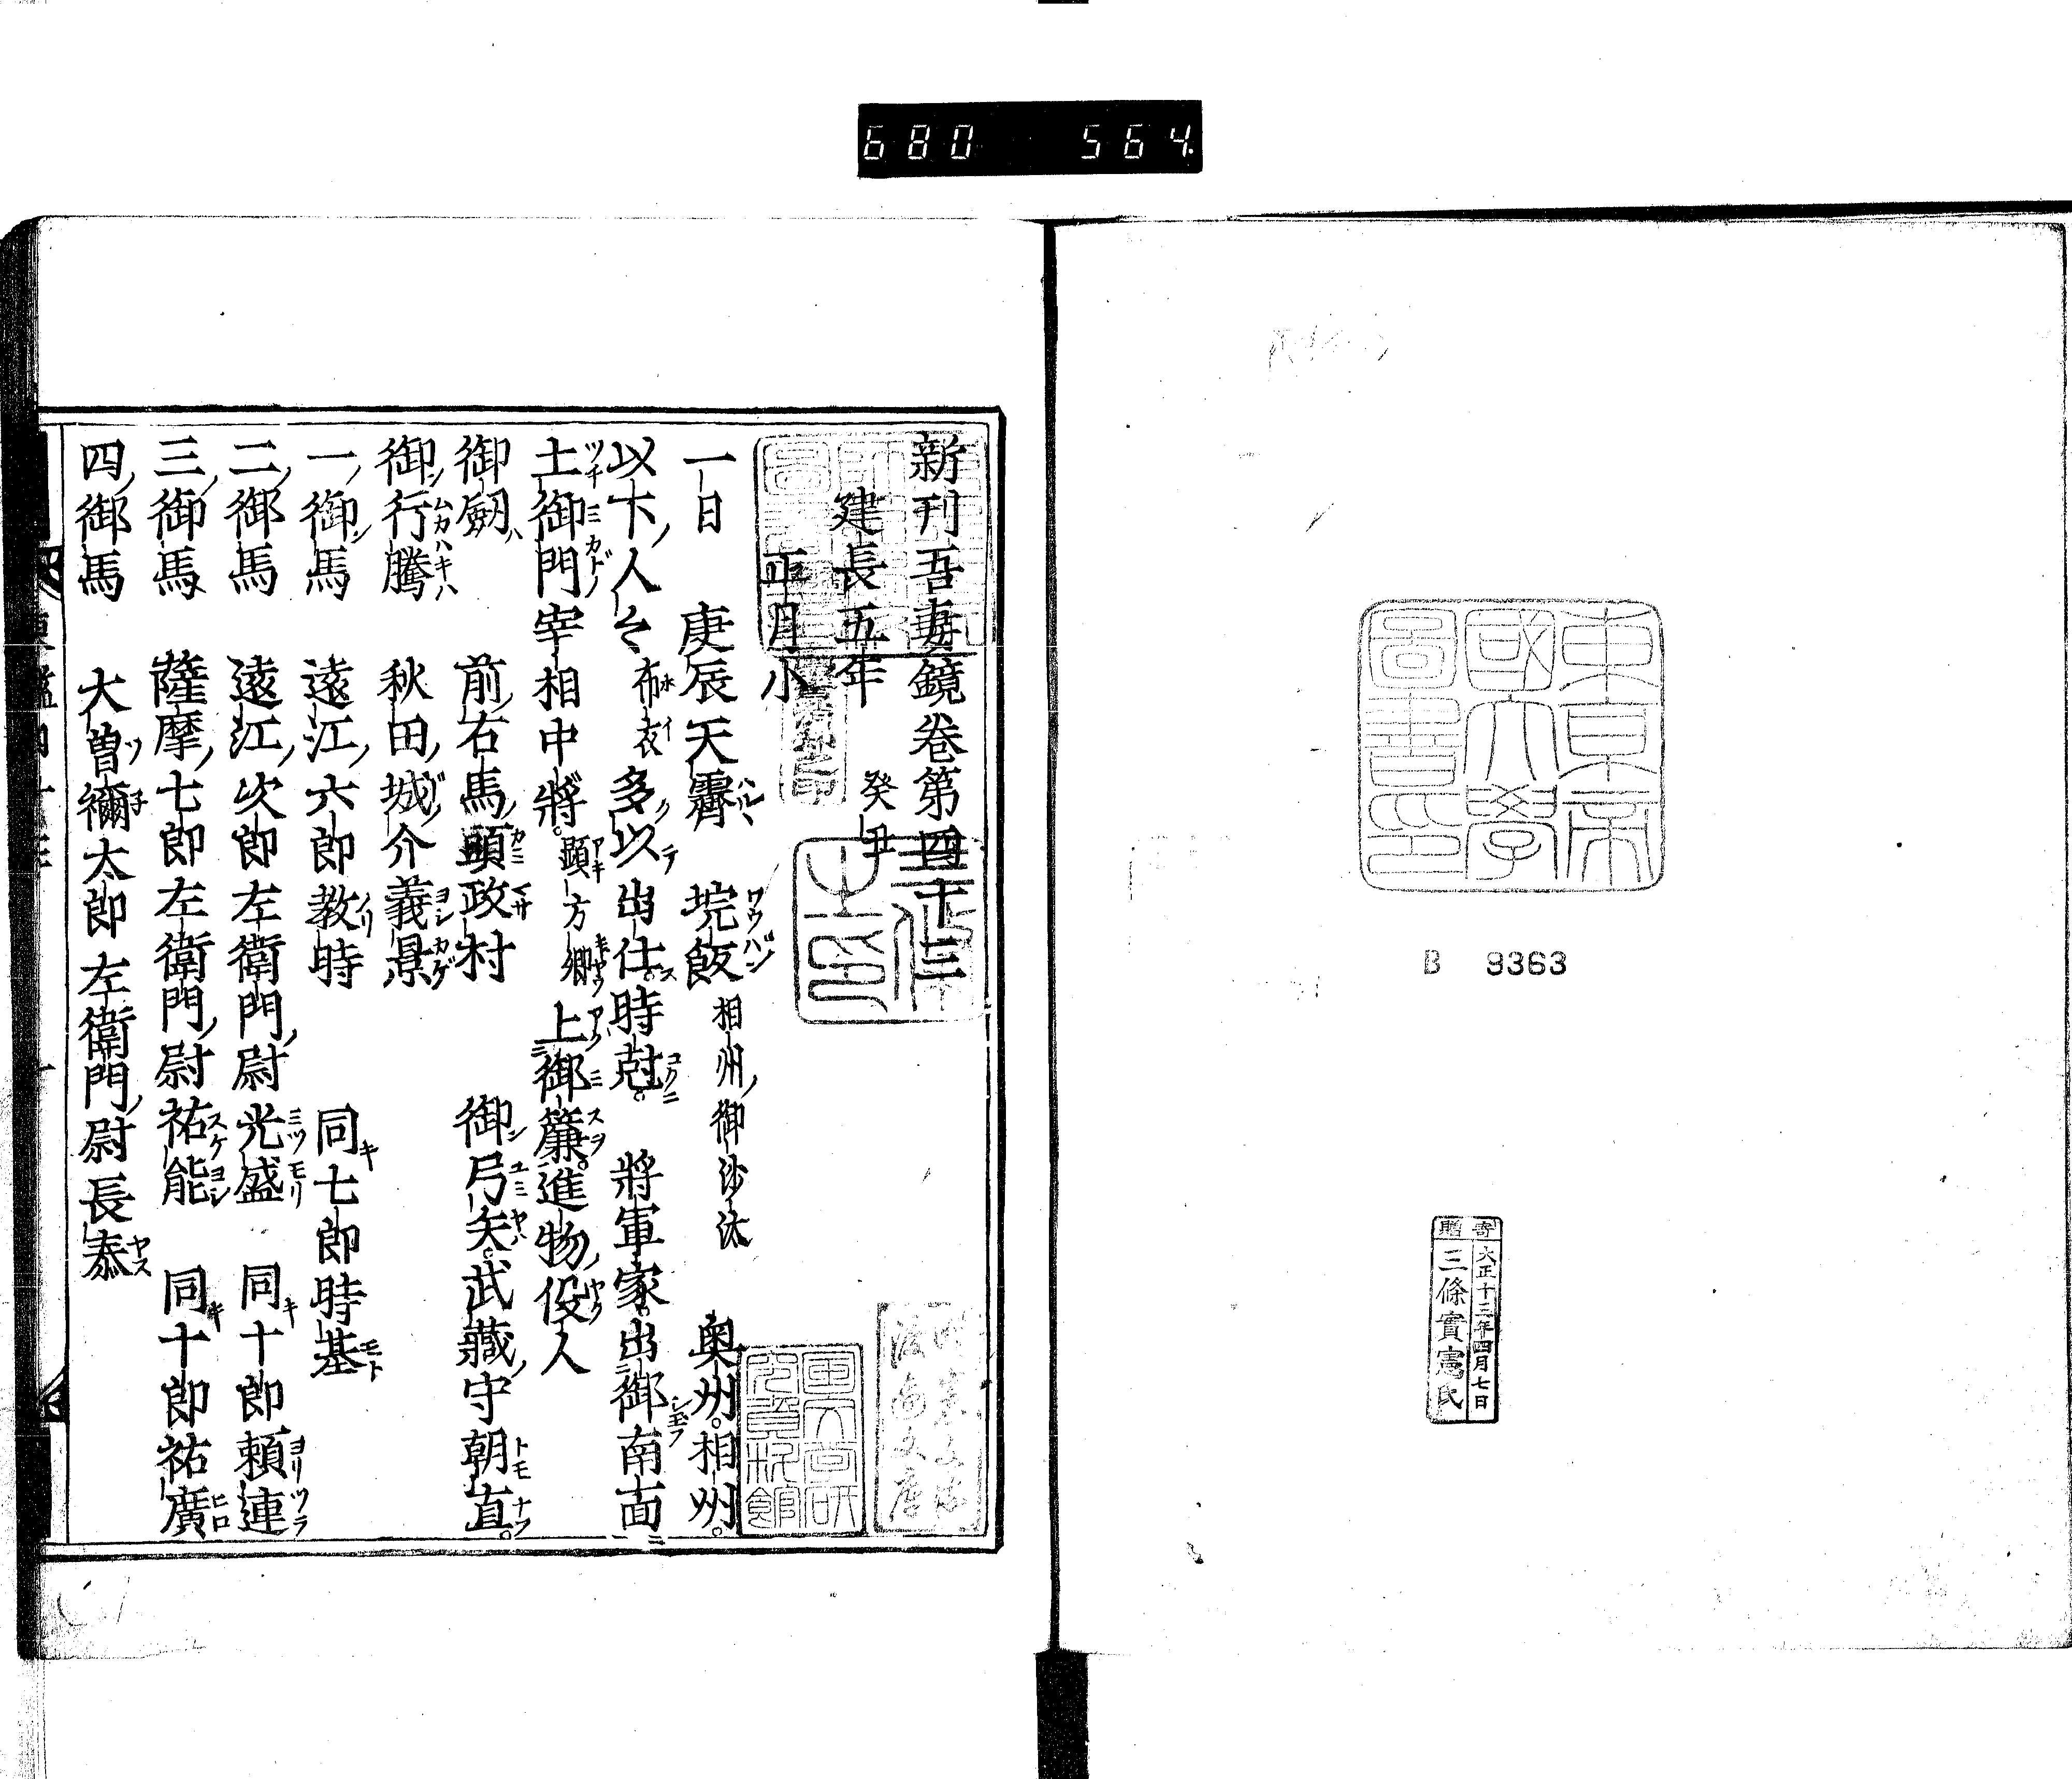 680 564.
東京帝
國大學
圖書印
B 9363
寄贈
大正十三年四月七日
三條實憲氏
新刊吾妻鏡卷第四十三
建長五年 癸丑
正月小
一日 庚辰天霽 垸飯 相州御沙汰 奥州。相州。
以下人々 布衣 多以出仕。時尅。將軍家。出御南面
土御門宰相中將。顯方卿 上御簾。進物役人
御劔 前右馬頭政村 御弓矢。武藏守朝直。
御行騰 秋田城介義景
一御馬 遠江六郎教時 同七郎時基
二御馬 遠江次郎左衛門尉光盛 同十郎頼連
三御馬 薩摩七郎左衛門尉祐能 同十郎祐廣
四御馬 大曽禰太郎左衛門尉長泰